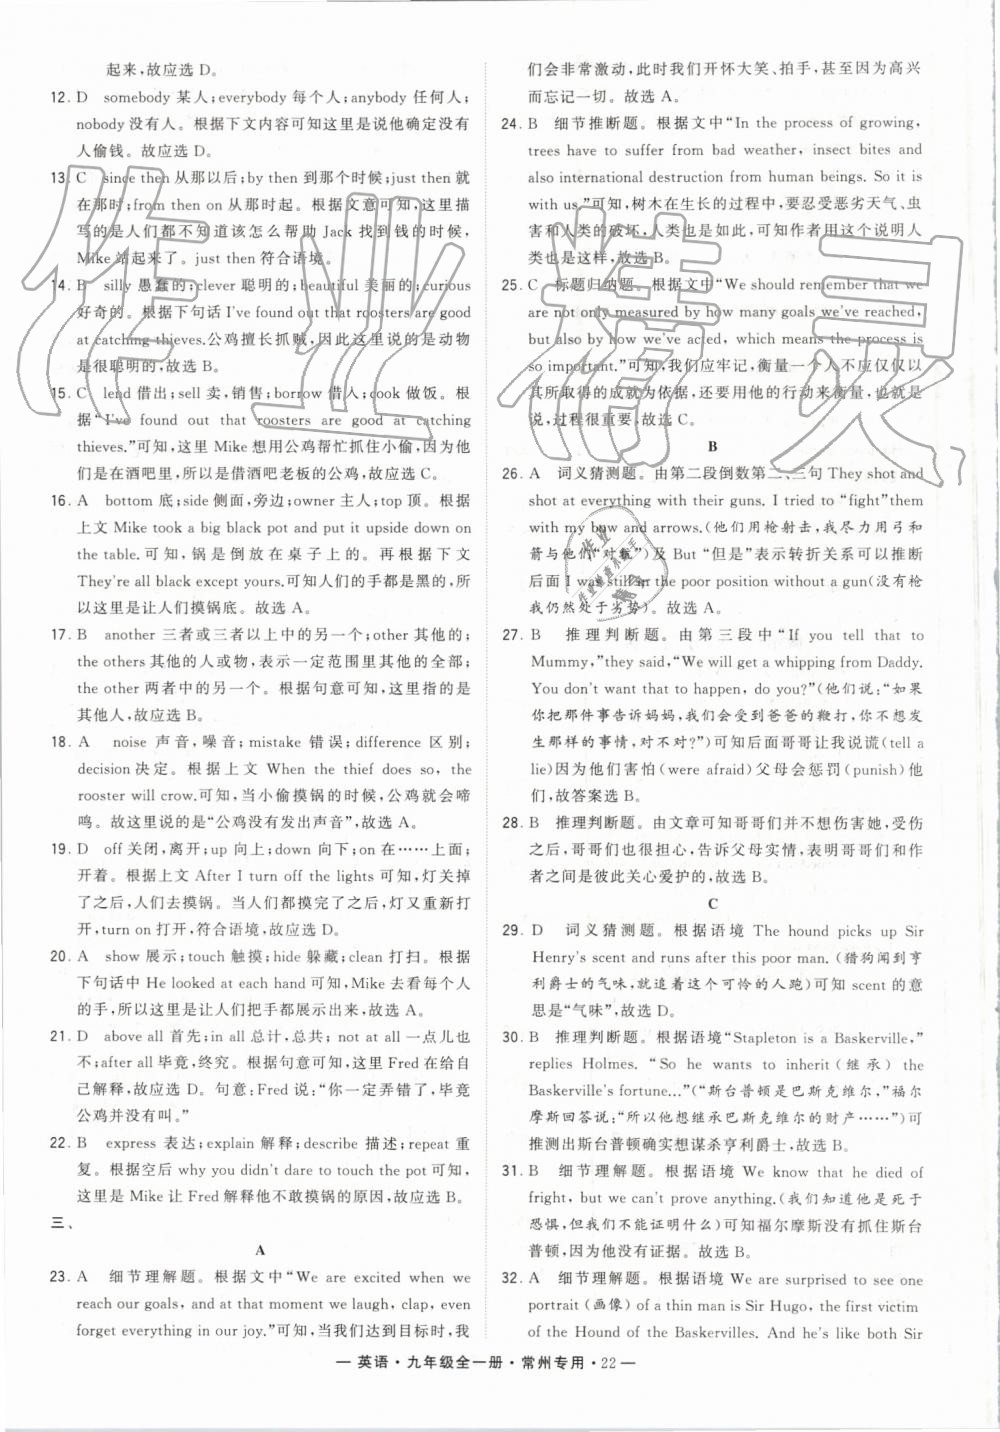 起来,故应选 D。
12. D somebody 某人;everybody 每个人;anybody 任何人;
nobody 没有人。根据下文内容可知这里是说他确定没有
人偷钱。故应选 D。
13. C since then 从那以后;by then 到那个时候;just then 就
在那时;from then on 从那时起。根据文意可知,这里描
写的是人们都不知道该怎么帮助 Jack 找到钱的时候,
Mike 站起来了。just then 符合语境。
14. B silly 愚蠢的;clever 聪明的;beautiful 美丽的;curious
好奇的。根据下句话 I've found out that roosters are good
at catching thieves.公鸡擅长抓贼,因此这里说的是动物
是很聪明的,故选 B。
15. C lend 借出;sell 卖,销售;borrow 借入;cook 做饭。根
据“I've found out that roosters are good at catching
thieves.”可知,这里 Mike 想用公鸡帮忙抓住小偷,因为他
们是在酒吧里,所以是借酒吧老板的公鸡,故应选 C。
16. A bottom 底;side 侧面,旁边;owner 主人;top 顶。根据
上文 Mike took a big black pot and put it upside down on
the table.可知,锅是倒放在桌子上的。再根据下文
They're all black except yours.可知人们的手都是黑的,所
以这里是让人们摸锅底。故选 A。
17. B another 三者或三者以上中的另一个;other 其他的;
the others 其他的人或物,表示一定范围其他的全部;
the other 两者中的另一个。根据句意可知,这里指的是
其他人,故应选 B。
18. A noise 声音,噪音;mistake 错误;difference 区别;
decision 决定。根据上文 When the thief does so, the
rooster will crow.可知,当小偷摸锅的时候,公鸡就会啼
鸣。故这里说的是“公鸡没有发出声音”,故选 A。
19. D off 关闭,离开;up 向上;down 向下;on 在……上面;
开着。根据上文 After I turn off the lights 可知,灯关掉
了之后,人们去摸锅。当人们都摸了之后,灯又打
开,turn on 打开,符合语境,故应选 D。
20. A show 展示;touch 触摸;hide 躲藏;clean 打扫。根据
下句话中 He looked at each hand 可知,Mike 去看每个人
的手,所以这里是让人们把手都展示出来,故选 A。
21. D above all 首先;in all 总计,总共;not at all 一点儿也
不;after all 毕竟,终究。根据句意可知,这里 Fred 在给自
己解释,故应选 D。句意:Fred 说:“你一定弄错了,毕竟
公鸡并没有叫。”
22. B express 表达;explain 解释;describe 描述;repeat 重
复。根据空后 why you didn't dare to touch the pot 可知,
这里是 Mike 让 Fred 解释他不敢摸锅的原因,故应选 B。
三、
A
23. A 细节理解题。根据文中“We are excited when we
reach our goals, and at that moment we laugh, clap, even
forget everything in our joy.”可知,当我们达到目标时,我
们会非常激动,此时我们开怀大笑、拍手,甚至因为高兴
而忘记一切。故选 A。
24. B 细节推断题。根据文中“In the process of growing,
trees have to suffer from bad weather, insect bites and
also international destruction from human beings. So it is
with us.”可知,树木在生长的过程中,要忍受恶劣天气、虫
害和人类的破坏,与此相同,可知作者用这个说明人
类也是这样,故选 B。
25. C 标题归纳题。根据文中“We should remember that we
are not only measured by how many goals we've reached,
but also by how we've acted, which means the process is
so important.”可知,我们应牢记,衡量一个人不应仅仅以
其所取得的成就为依据,还要用他的行动来衡量,也就是
说,过程很重要,故选 C。
B
26. A 词义猜测题。由第二段倒数第二、三句 They shot and
shot at everything with their guns. I tried to “fight”them
with my bow and arrows.(他们用枪射击,我尽力用弓和
箭与他们“对抗”)及 But “但是”表示转折关系可以推断
后面 I was still in the poor position without a gun(没有枪
我仍然处于劣势)。故选 A。
27. B 推理判断题。由第三段中“If you tell that to
Mummy,”they said,“We will get a whipping from Daddy.
You don't want that to happen, do you?”(他们说:“如果
你把那件事告诉妈妈,我们会受到爸爸的鞭打,你不想发
生那样的事情,对不对?”)可知后面哥哥让我说谎(tell a
lie)因为他们害怕(were afraid)父母会惩罚(punish)他
们,故答案选 B。
28. B 推理判断题。由文章可知哥哥们并不想伤害她,受伤
之后,哥哥们也很担心,告诉父母实情,表明哥哥们和作
者之间是彼此关心爱护的,故选 B。
C
29. D 词义猜测题。根据语境 The hound picks up Sir
Henry's scent and runs after this poor man.(猎狗闻到亨
利爵士的气味,就追着这个可怜的人跑)可知 scent 的意
思是“气味”,故选 D。
30. B 推理判断题。根据语境“Stapleton is a Baskerville,”
replies Holmes. “So he wants to inherit(继承)the
Baskerville's fortune...”(“斯台普顿是巴斯克维尔,”福尔
摩斯回答说:“所以他想继承巴斯克维尔的财产……”)可
推测出斯台普顿确实想谋杀亨利爵士,故选 B。
31. B 细节理解题。根据语境 We know that he died of
fright, but we can't prove anything.(我们知道他是死于
恐惧,但我们不能证明什么)可知福尔摩斯没有抓住斯台
普顿,因为没有证据。故选 B。
32. A 细节理解题。根据语境 We are surprised to see one
portrait(画像)of a thin man is Sir Hugo, the first victim
of the Hound of the Baskervilles. And he's like both Sir
— 英语·九年级全一册·常州专用·22 —
作业精灵